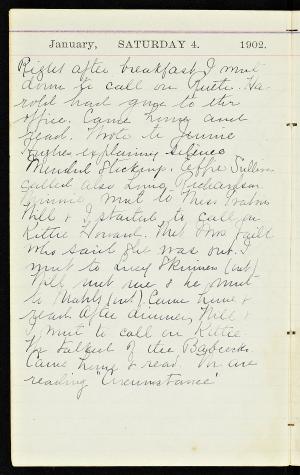 January, SATURDAY 4. 1902.
Right after breakfast I went
down to call on Ha-
rold had gone to the
office. Came home and
read. Wrote to Jennie
Hughes explaining silence
Mended Stockings. Effie Sullivan
called also Richardson
Minnie went to Miss
Will & I started to call on
Kittie Howard. Met
who said she was out. I
went to Lucy Skinners (out)
Will met me & he went
to (out) Came home &
read. After dinner Will &
I went to call on Kittie
We talked of the Babcocks
Came home & read. We are
reading "Circumstance"